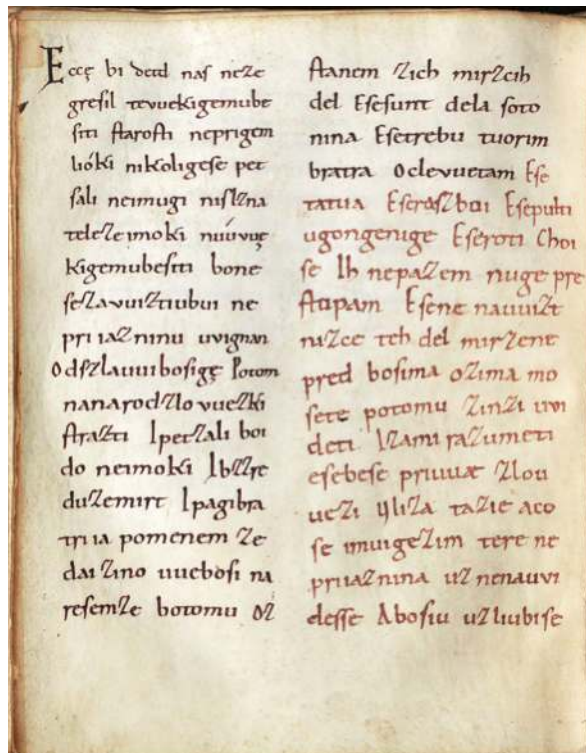 Eccę bi detd naſ neze
greſil tevuekigemube
ſiti ſtaroſti neprigem
lióki nikoligeſe pet
ſali neimugi niſlzna
teleze imoki nuúvuę
kigemubeſiti bone
ſezavuiztiubui ne
pri iazninu uvignan
Odſzlauui boſigę Potom
nanarodzlovuezki
ſtrazti Ipetzali boi
do neimoki Ibzzre
duzemirt I pagibra
tri ia pomenem ze
dai zino uueboſi na
reſemze botomu oz
ſtanem zich mirzcih
del Eſeſunt dela ſoto
nina Eſetrebu tuorim
bratra Oclevuetam Eſe
tatua Eſeraſzboi Eſepulti
ugongenige Eſeroti Choi
ſe Ih nepazem nuge pre
ſtupam Eſene nauuizt
nizce teh del mirzene
pred boſima ozima mo
ſete potomu zinzi uvi
deti Izami razumeti
eſebeſe priuuæ zlou
uezi Uliza tazie aco
ſe imuigezim tere ne
priiaznina uz nenauvi
deſſe Aboſiu uzliubiſe